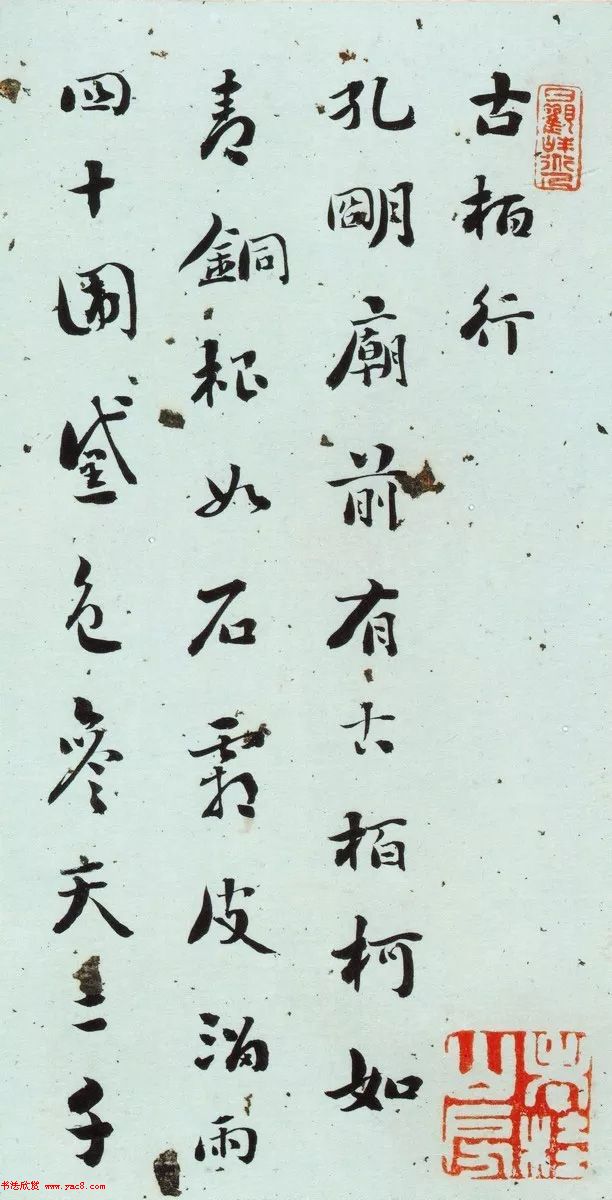 古栢行
孔明廟前有古栢柯如
青銅根如石霜皮溜雨
四十圍黛色參天二千
书法欣赏 www.yac8.com